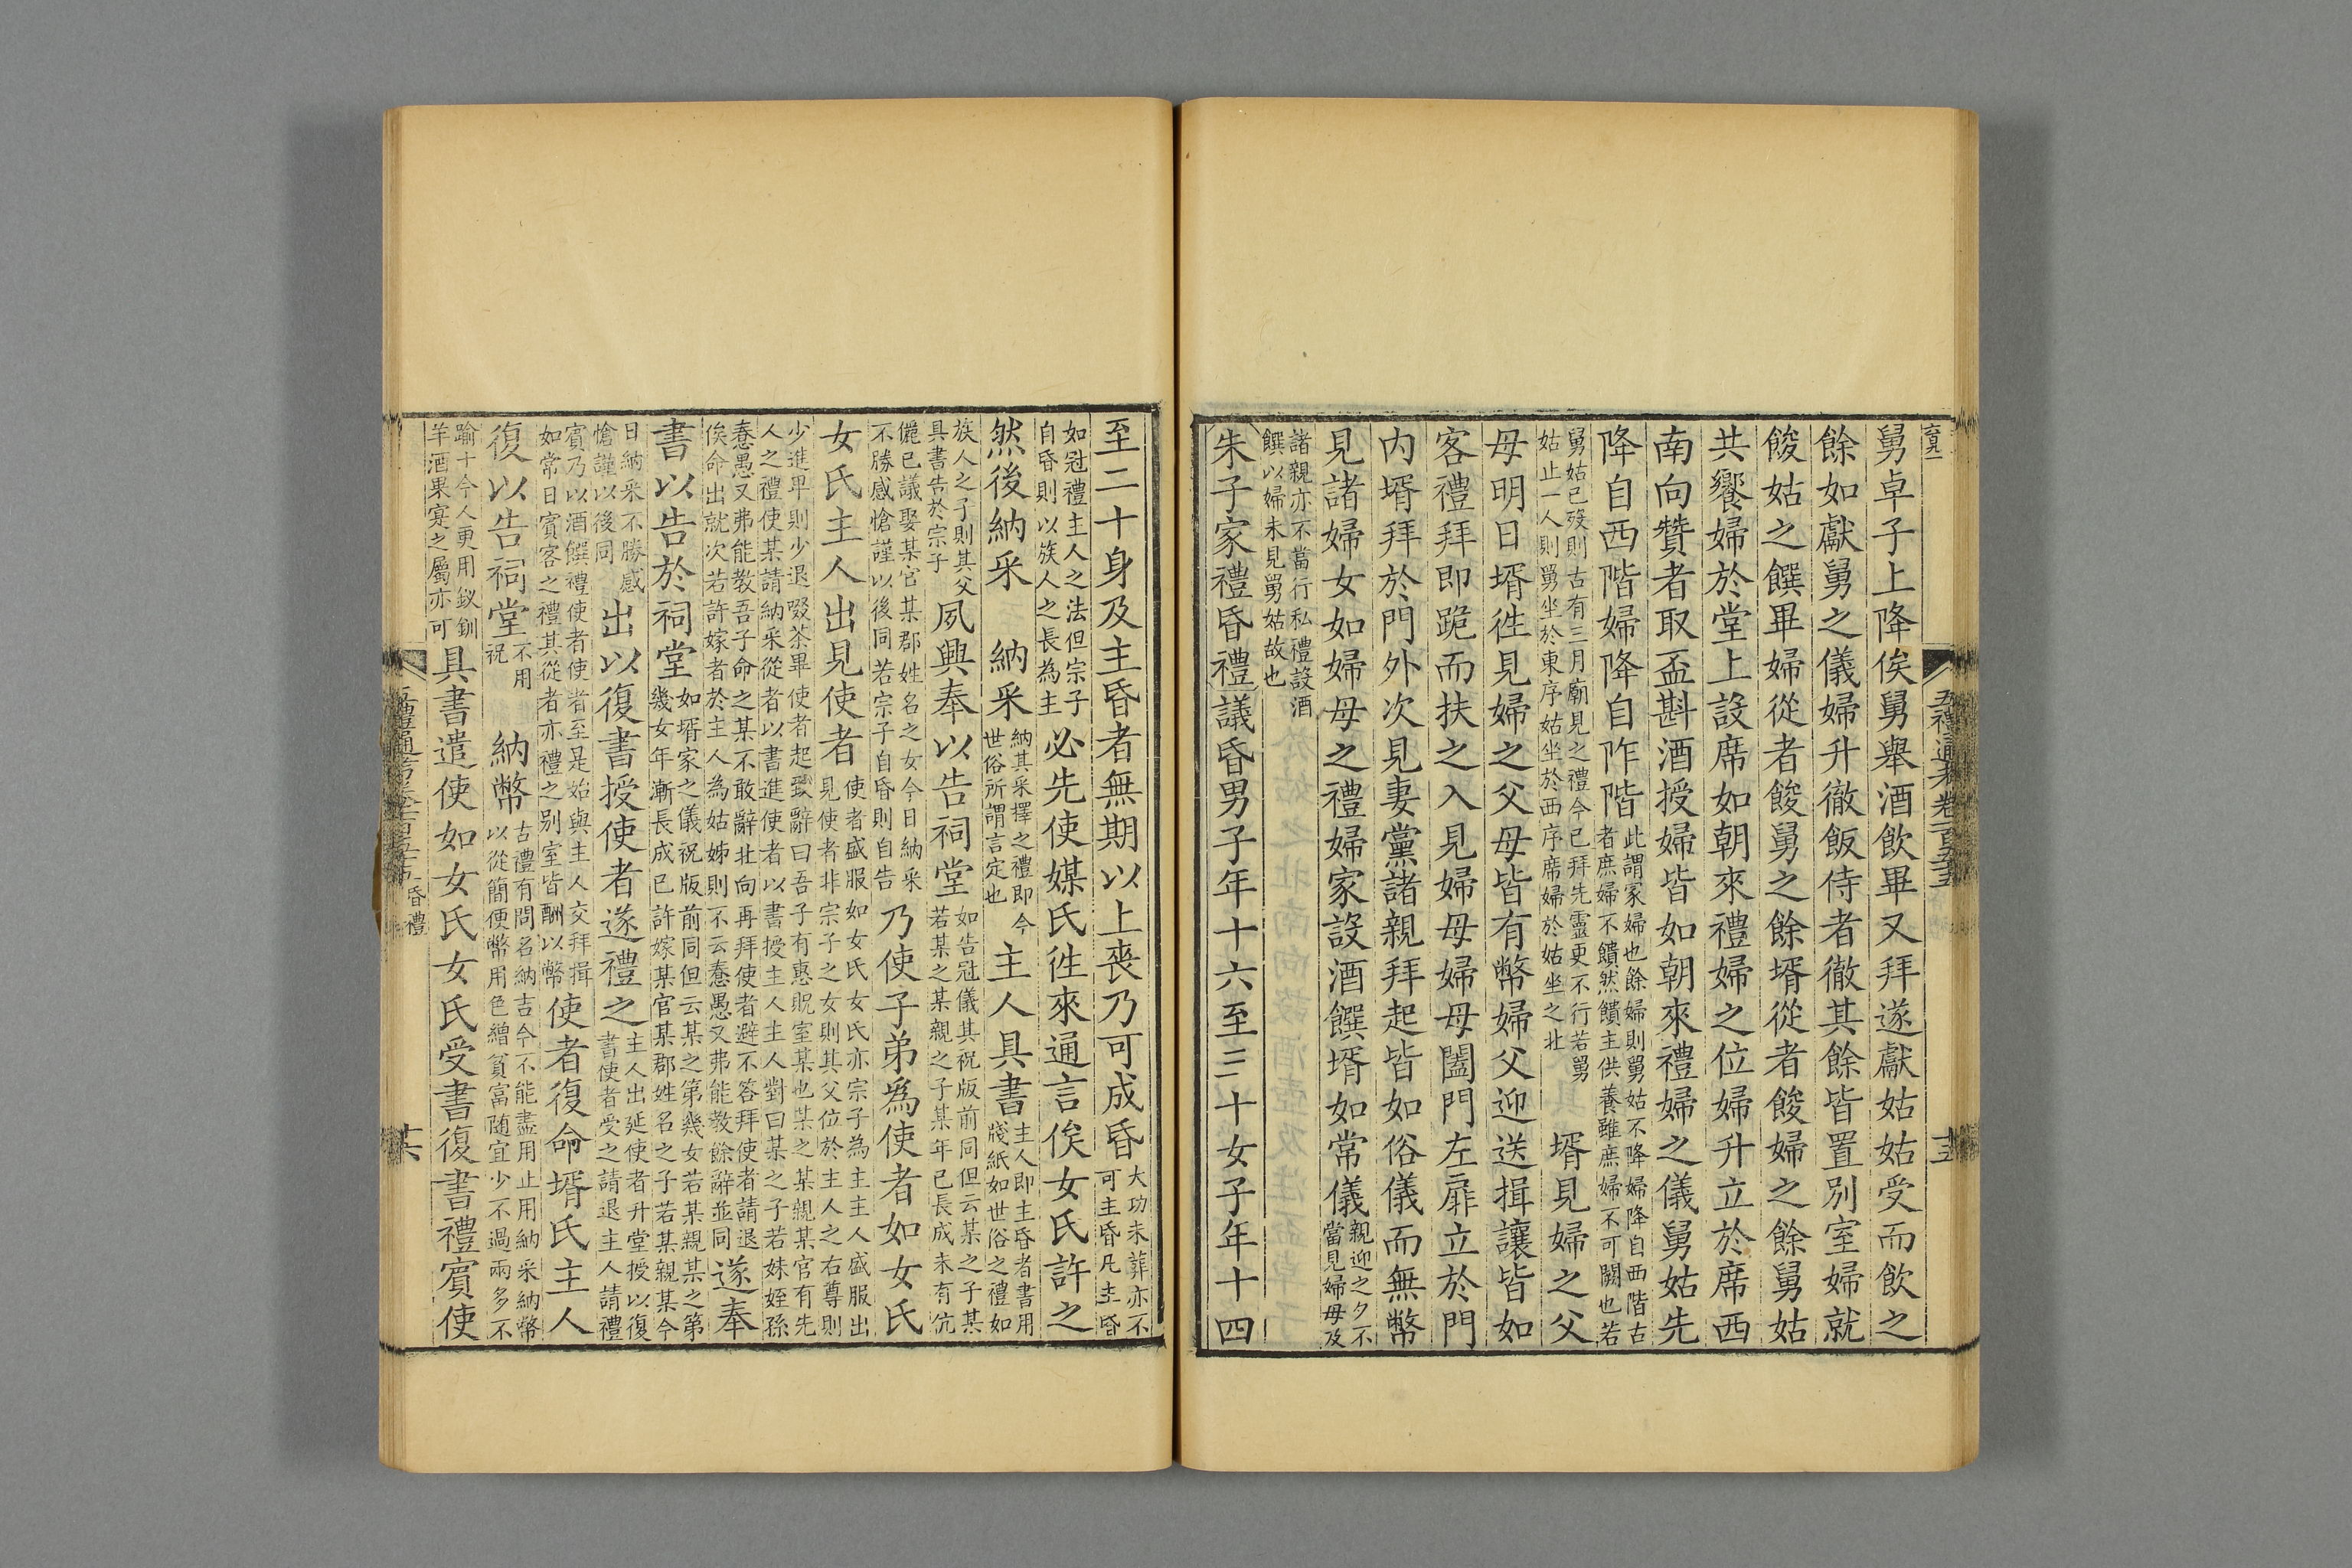 五禮通考卷一百五十五
舅卓子上降俟舅舉酒飲畢又拜遂獻姑姑受而飲之
餘如獻舅之儀婦升徹飯侍者徹其餘皆置別室婦就
餕姑之饌畢婦從者餕舅之餘壻從者餕婦之餘舅姑
共饗婦於堂上設席如朝來禮婦之位婦升立於席西
南向贊者取盃斟酒授婦皆如朝來禮婦之儀舅姑先
降自西階婦降自阼階
此謂冢婦也餘婦則舅姑不降婦降自西階古
者庶婦不饋然饋主供養雖庶婦不可闕也若
舅姑已歿則古有三月廟見之禮今已拜先靈更不行若舅
姑止一人則舅坐於東序姑坐於西序席婦於姑坐之北
壻見婦之父
母明日壻徃見婦之父母皆有幣婦父迎送揖讓皆如
客禮拜即跪而扶之入見婦母婦母闔門左扉立於門
内壻拜於門外次見妻黨諸親拜起皆如俗儀而無幣
見諸婦女如婦母之禮婦家設酒饌壻如常儀
親迎之夕不
當見婦母及
諸親亦不當行私禮設酒
饌以婦未見舅姑故也
朱子家禮昏禮議昏男子年十六至三十女子年十四
至二十身及主昏者無期以上喪乃可成昏
大功未葬亦不
可主昏凡主昏
如冠禮主人之法但宗子
自昏則以族人之長為主
必先使媒氏徃來通言俟女氏許之
然後納采 納采
納其采擇之禮即今
世俗所謂言定也
主人具書
主人即主昏者書用
牋紙如世俗之禮如
族人之子則其父
具書告於宗子
夙興奉以告祠堂
如告冠儀其祝版前同但云某之子某
若某之某親之子某年已長成未有伉
儷已議娶某官某郡姓名之女今日納采
不勝感愴謹以後同若宗子自昏則自告
乃使子弟爲使者如女氏
女氏主人出見使者
使者盛服如女氏女氏亦宗子為主主人盛服出
見使者非宗子之女則其父位於主人之右尊則
少進卑則少退啜茶畢使者起致辭曰吾子有惠貺室某也某之某親某官有先
人之禮使某請納采從者以書進使者以書授主人主人對曰某之子若妹姪孫
惷愚又弗能教吾子命之某不敢辭北向再拜使者避不答拜使者請退
俟命出就次若許嫁者於主人為姑姊則不云惷愚又弗能教餘辭並同
遂奉
書以告於祠堂
如壻家之儀祝版前同但云某之第幾女若某親某之第
幾女年漸長成已許嫁某官某郡姓名之子若某親某今
日納采不勝感
愴謹以後同
出以復書授使者遂禮之
主人出延使者升堂授以復
書使者受之請退主人請禮
賓乃以酒饌禮使者使者至是始與主人交拜揖
如常日賓客之禮其從者亦禮之別室皆酬以幣
使者復命壻氏主人
復以告祠堂
不用
祝
納幣
古禮有問名納吉今不能盡用止用納采納幣
以從簡便幣用色繒貧富随宜少不過兩多不
踰十今人更用釵釧
羊酒果寔之屬亦可
具書遣使如女氏女氏受書復書禮賓使
昏禮